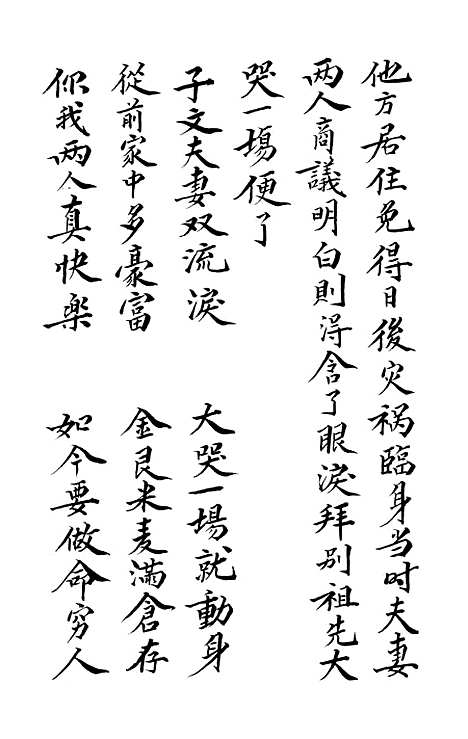 他方居住免得日後灾祸臨身当时夫妻
两人商議明白則淂含了眼淚拜别祖先大
哭一場便了
子文夫妻双流淚 大哭一場就動身
從前家中多豪富 金艮米麦满倉存
你我两人真快楽 如今要做命穷人